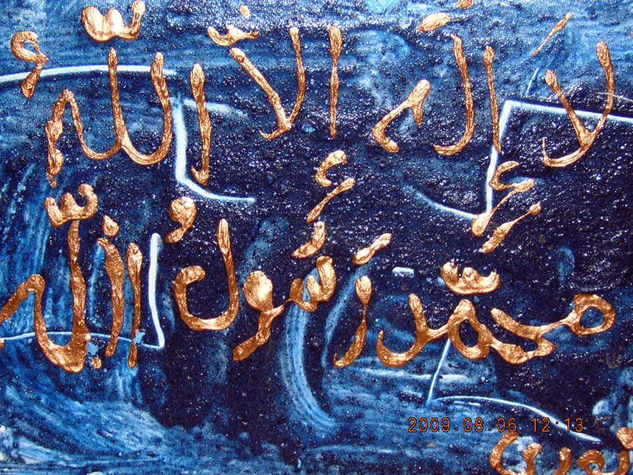 لا إله إلا الله
محمد رسول الله
2009.08.06 12:13